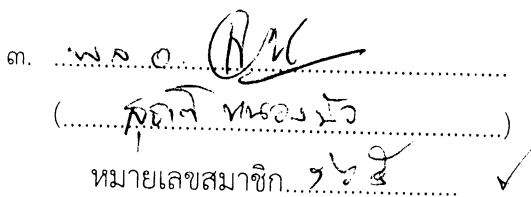 ๓. พล อ.
(สุชาติ หนองบัว)
หมายเลขสมาชิก ๑๖๕ ✓